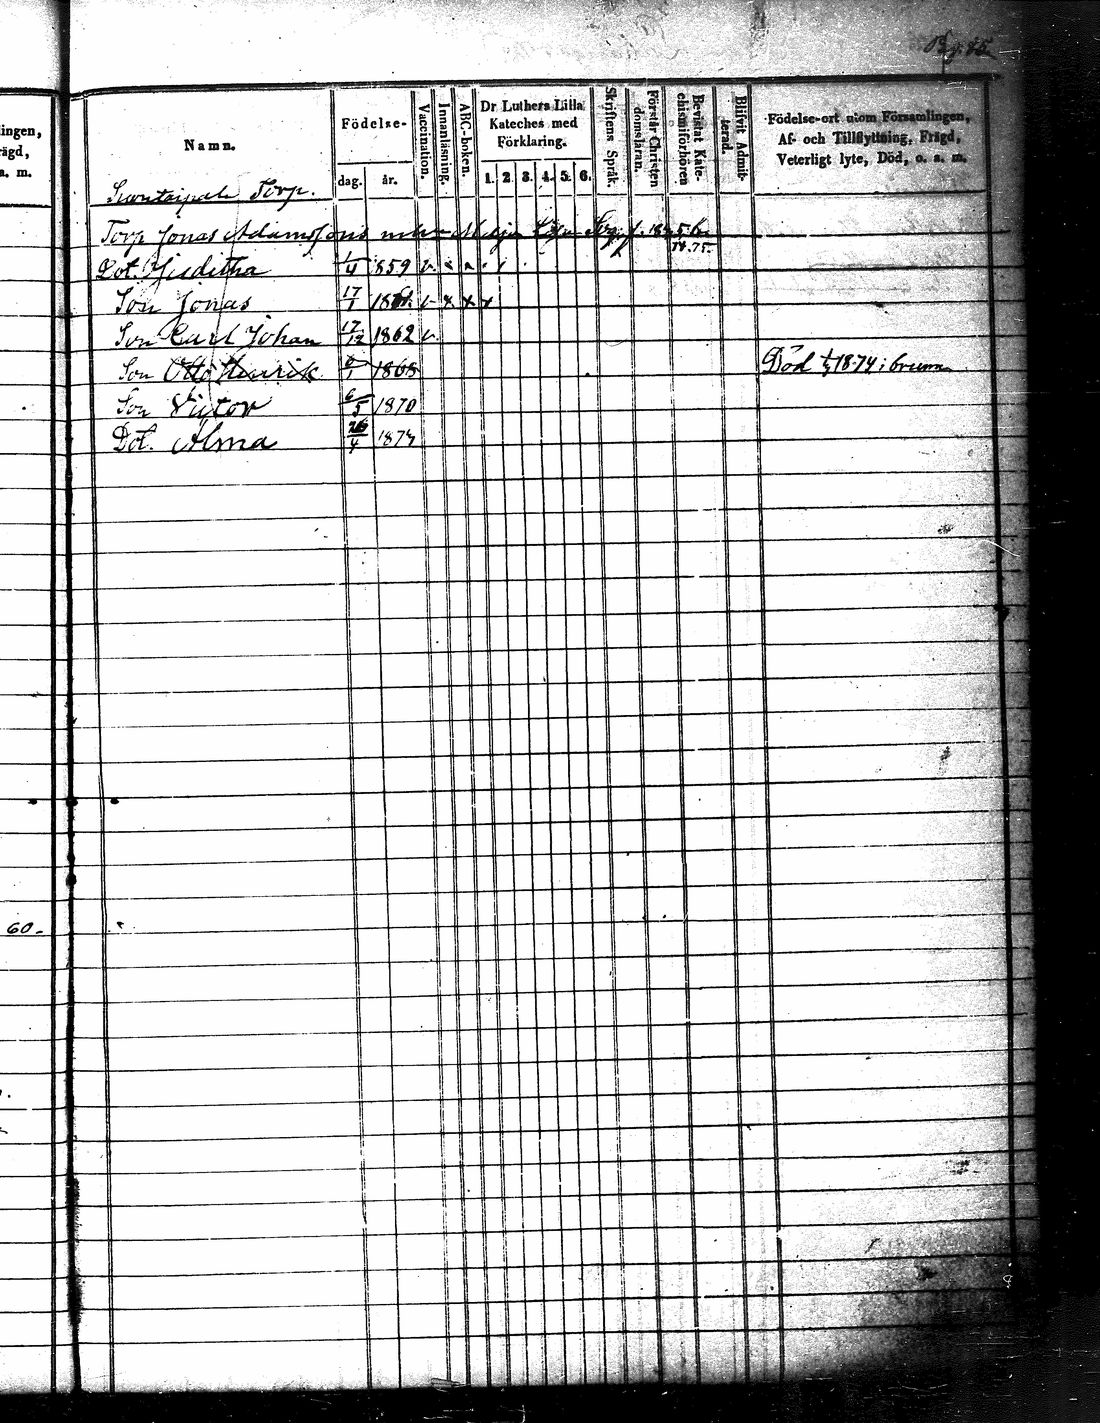 lingen,
rägd,
a. m.
Namn.
Födelse-
dag.
år.
Vaccination.
Innanläsning.
ABC-boken.
Dr Luthers Lilla
Kateches med
Förklaring.
1. 2. 3. 4. 5. 6.
Skriftens Språk.
Förstår Christen
domsläran.
Bevistat Kate-
chismiförhören
Blifvit Admit-
terad.
Födelse-ort utom Församlingen,
Af- och Tillflyttning, Frägd,
Veterligt lyte, Död, o. s. m.
Torp.
Torp Jonas Adamssons
18.75.
Dot. Juditha 1/4 1859 v
Son Jonas 17/1 v x x x
Son Carl Johan 17/12 1862 v.
Son Otto Henrik 1868 Död 1874 i brunn
Son Victor 6/5 1870
Dot. Alma 26/4 1874
60.